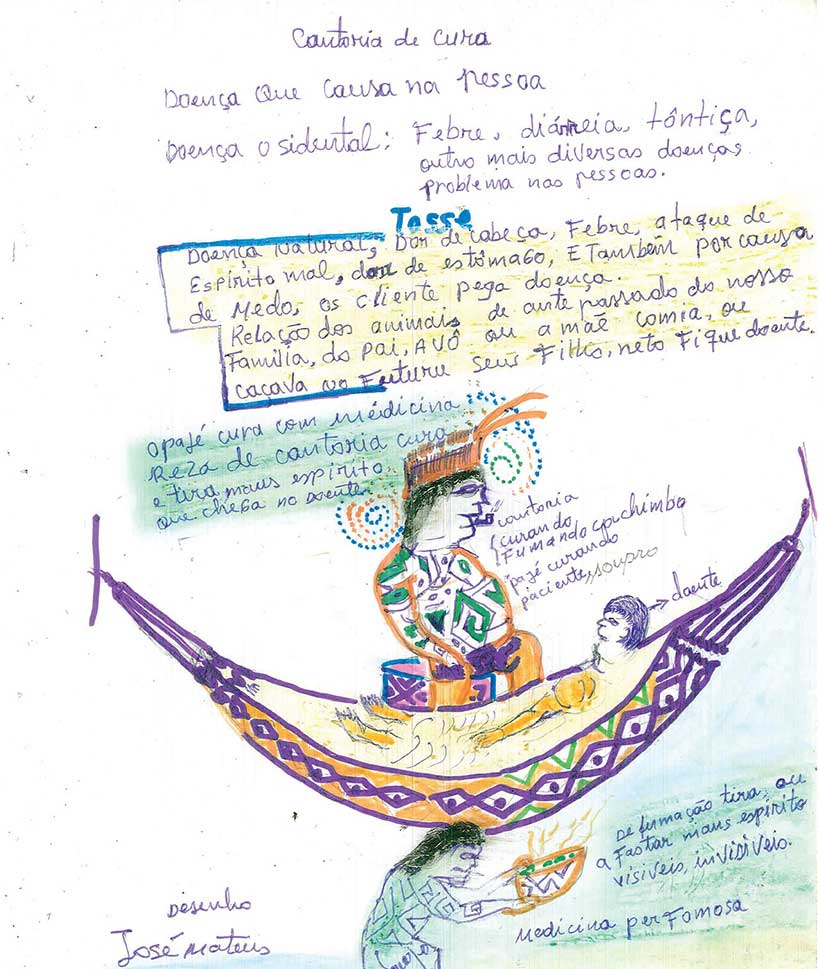 Cantoria de cura
Doença Que causa na pessoa
Doença o sidental: Febre, diárreia, tôntiça,
outro mais diversas doenças
problema nas pessoas.
Tosse
Doença natural, Dor de cabeça, Febre, ataque de
Espírito mal, dor de estômago, E Também por causa
de Medo, os cliente pega doença.
Relação dos animais de ante passado do nosso
Família, do pai, AVÔ ou a mãe comia, ou
caçava no Futuru seus Filho, neto Fique doente.
O pajé cura com médicina
Reza de cantoria cura
e tira maus espirito
que chega no doente.
cantoria
curando
Fumando cachimbo
pajé curando
paciente, soupro
doente
De fumação tira, ou
a Fastar maus espirito
visiveis, invisiveis.
Medicina per Fomosa
Desenho
José Mateus